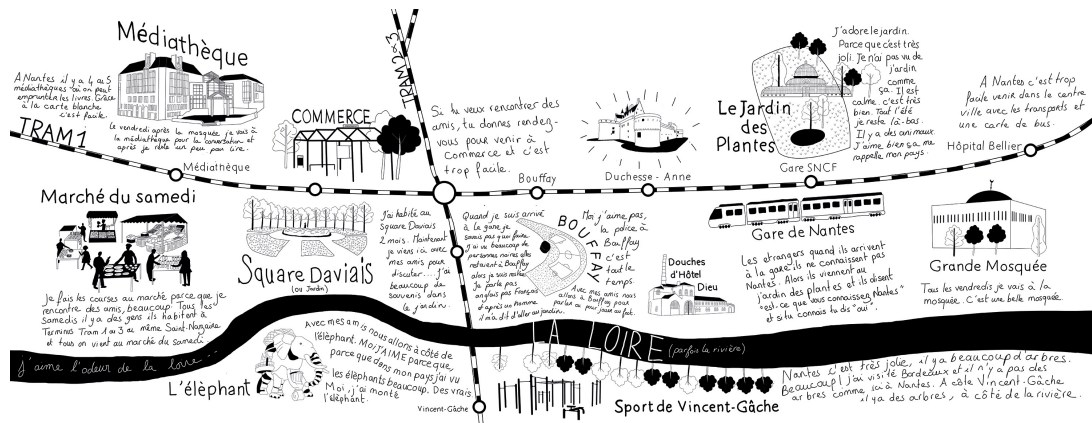 Médiathèque
A Nantes il y a 4 ou 5
médiathèques où on peut
emprunter les livres. Grâce
à la carte blanche
c'est facile.
Le vendredi après la mosquée, je vais à
la médiathèque pour la conversation et
après je reste un peu pour lire.
TRAM 1
Médiathèque
COMMERCE
TRAM 2 et 3
Si tu veux rencontrer des
amis, tu donnes rendez-
vous pour venir à
Commerce et c'est
trop facile.
Bouffay
Duchesse - Anne
Le Jardin
des
Plantes
J'adore le jardin.
Parce que c'est très
joli. Je n'ai pas vu de
jardin
comme
ça. Il est
calme. c'est très
bien. Tout l'été
je reste là-bas.
Il y a des animaux.
J'aime bien ça me
rappelle mon pays.
Gare SNCF
A Nantes c'est trop
facile venir dans le centre
ville avec les transports et
une carte de bus.
Hôpital Bellier
Marché du samedi
Je fais les courses au marché parce que je
rencontre des amis, beaucoup. Tous les
Samedis il y a des gens ils habitent à
Terminus Tram 1 ou 3 ou même Saint-Nazaire
et tous on vient au marché du samedi
Square Daviais
(ou Jardin)
J'ai habité au
Square Daviais
2 mois. Maintenant
je viens ici avec
mes amis pour
discuter... J'ai
beaucoup de
souvenirs dans
le jardin.
Quand je suis arrivé
à la gare je
savais pas quoi faire
j'ai vu beaucoup de
personnes noires elles
restaient à Bouffay
alors je suis resté.
Je parle pas
anglais pas Français
et après un homme
il m'a dit d'aller au jardin.
BOUFFAY
Moi j'aime pas,
la police à
Bouffay
c'est
tout le
temps.
Avec mes amis nous
allons à Bouffay pour
parler ou pour jouer au foot.
Douches
d'Hôtel
Dieu
Gare de Nantes
Les étrangers quand ils arrivent
à la gare ils ne connaissent pas
Nantes. Alors ils viennent au
jardin des plantes et ils disent
"est-ce que vous connaissez Nantes"
et si tu connais tu dis "oui".
Grande Mosquée
Tous les vendredis je vais à la
mosquée. C'est une belle mosquée.
LA LOIRE (parfois la rivière)
j'aime l'odeur de la loire...
L'éléphant
Avec mes amis nous allons à côté de
l'éléphant. Moi J'AIME parce que,
parce que dans mon pays j'ai vu
les éléphants beaucoup. Des vrais.
Moi, j'ai monté
l'éléphant.
Vincent-Gâche
Sport de Vincent-Gâche
Nantes c'est très jolie, il y a beaucoup d'arbres.
Beaucoup! J'ai visité Bordeaux et il n'y a pas des
arbres comme ici à Nantes. A côté Vincent-Gâche
il y a des arbres, à côté de la rivière.